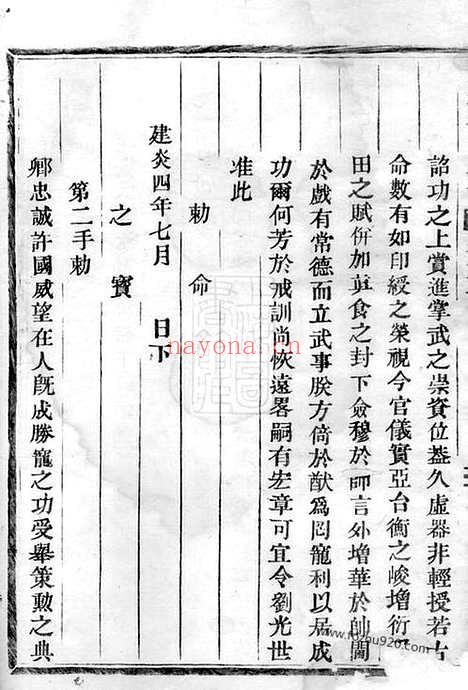 詔功之上賞進掌武之崇資位蓋久虛器非輕授若古
命數有如印綬之榮視今官儀實亞台衡之峻增衍
田之賦併加眞食之封下僉穆於師言外增華於帥閫
於戲有常德而立武事朕方倚於猷爲罔寵利以居成
功爾何芳於戒訓尚恢遠畧嗣有宏章可宜令劉光世
准此
勅命
建炎四年七月 日下
之寶
第二手勅
卿忠誠許國威望在人旣成勝寵之功受舉策勲之典
nayona.cn
www.fozhu920.com